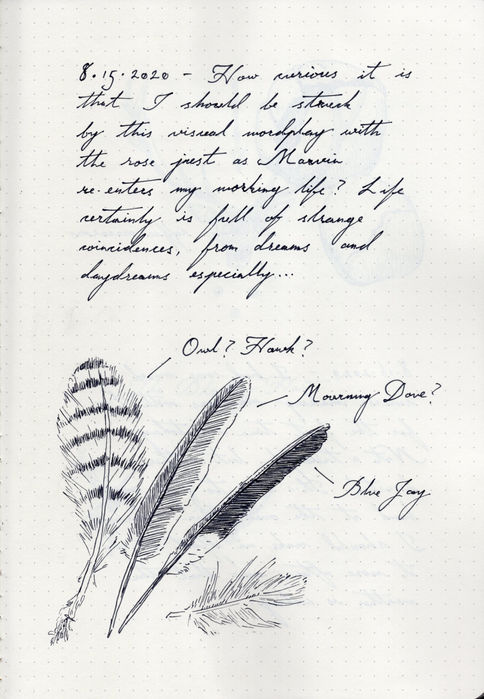 8.15.2020 - How curious it is
that I should be struck
by this visual wordplay with
the rose just as Marvin
re-enters my working life? Life
certainly is full of strange
coincidences, from dreams and
daydreams especially...
Owl? Hawk?
Mourning Dove?
Blue Jay